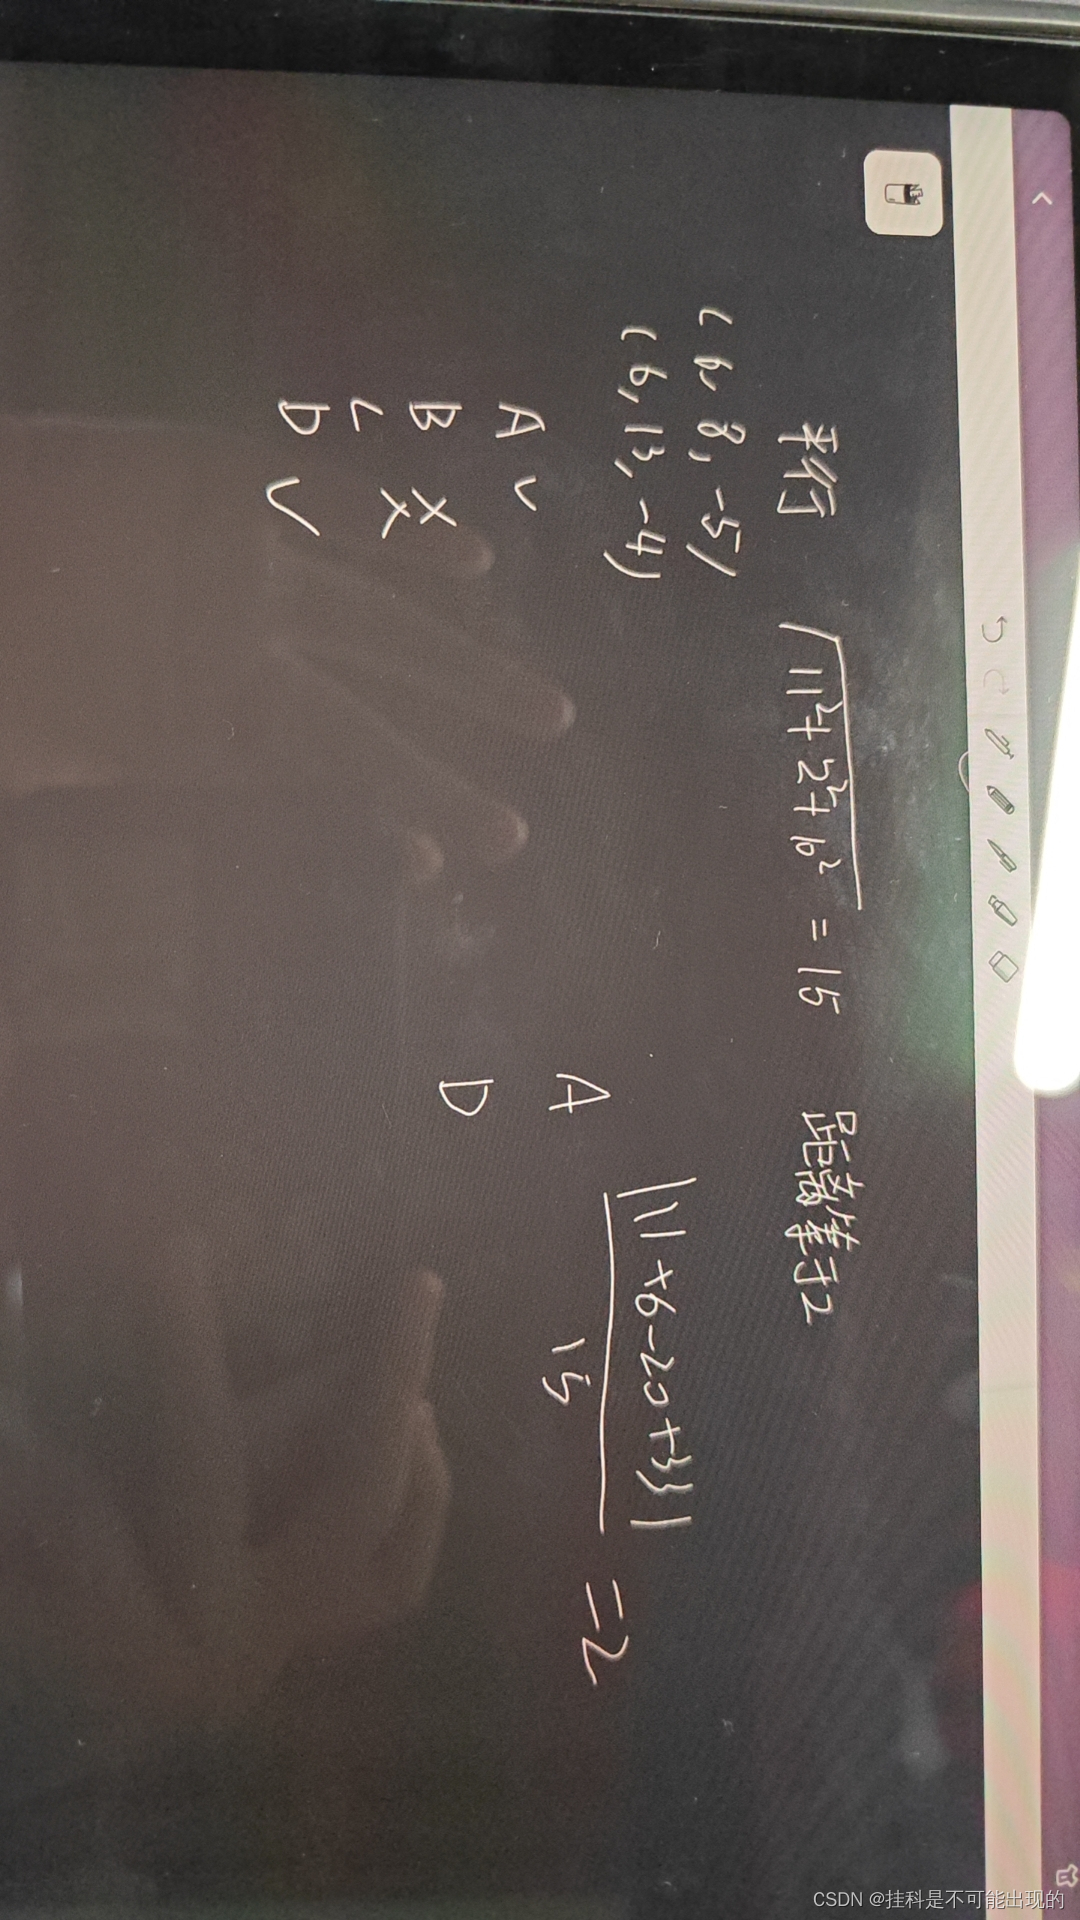 平行 √11²+2²+10² = 15 距离等于2
(6, 8, -5)
(6, 13, -4)
|11+6-20+33|
15
=2
A √
A
B ×
C ×
D
D √
CSDN @挂科是不可能出现的